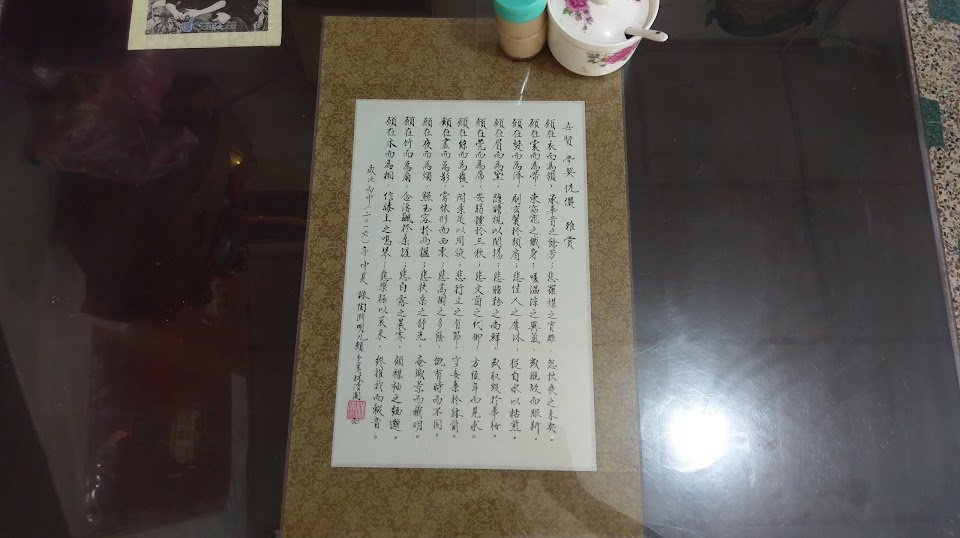 賢 學契 伉儷 雅賞
願在衣而為領，承華首之餘芳；悲羅襟之宵離，怨秋夜之未央。
願在裳而為帶，束窈窕之纖身；嗟溫涼之異氣，或脫故而服新。
願在髮而為澤，刷玄鬢於頹肩；悲佳人之屢沐，從白水以枯煎。
願在眉而為黛，隨瞻視以閒揚；悲脂粉之尚鮮，或取毀於華妝。
願在莞而為席，安弱體於三秋；悲文茵之代御，方經年而見求。
願在絲而為履，附素足以周旋；悲行止之有節，空委棄於床前。
願在晝而為影，常依形而西東；悲高樹之多蔭，慨有時而不同。
願在夜而為燭，照玉容於兩楹；悲扶桑之舒光，奄滅景而藏明。
願在竹而為扇，含淒飆於柔握；悲白露之晨零，顧襟袖之緬邈。
願在木而為桐，作膝上之鳴琴；悲樂極以哀來，終推我而輟音。
歲次丙申（二〇一六）年仲夏 錄陶淵明